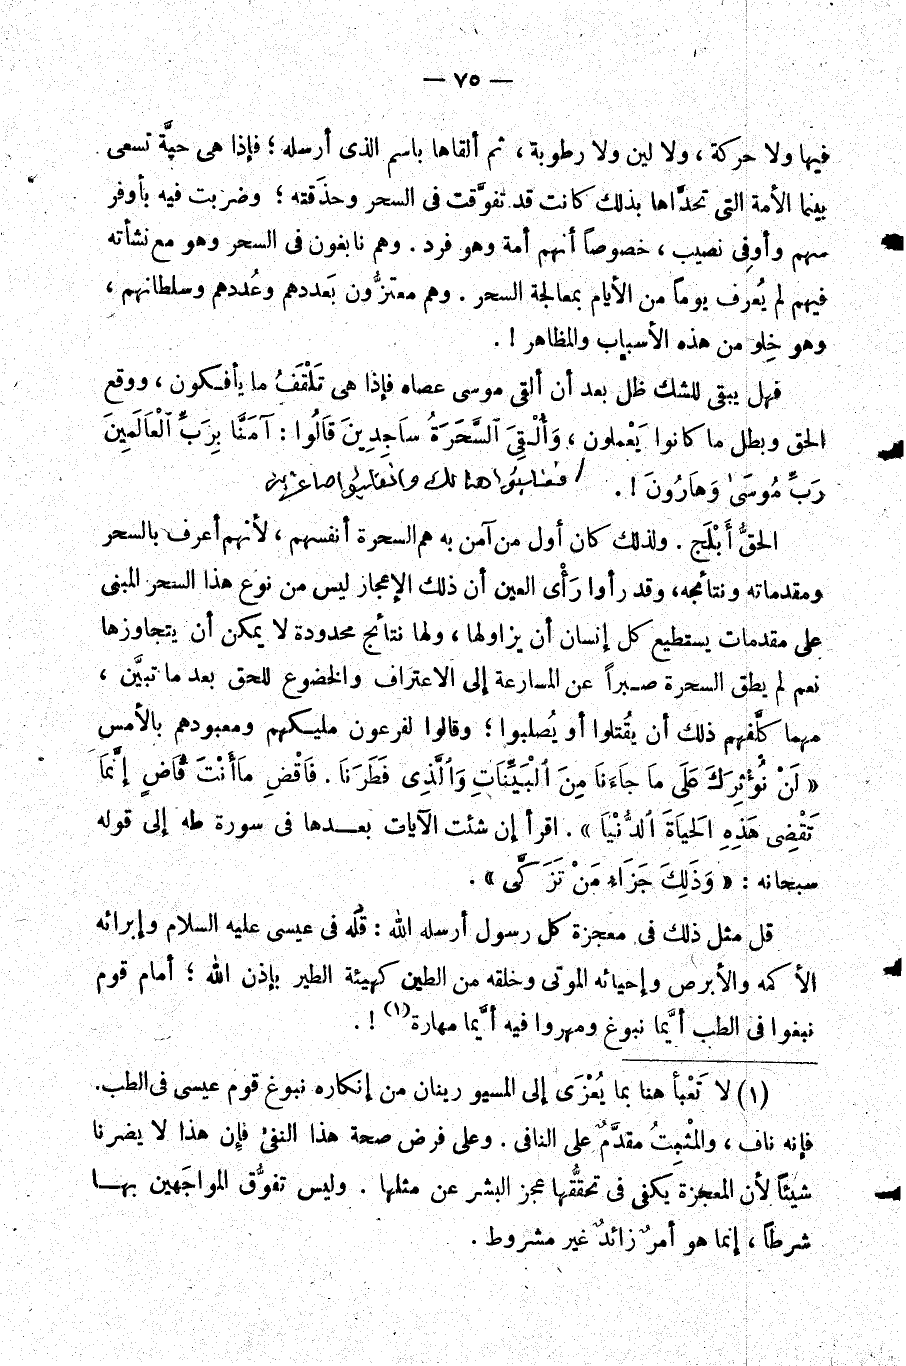 — ٧٥ —
فيها ولا حركة ، ولا لين ولا رطوبة ، ثم ألقاها باسم الذى أرسله ؛ فإذا هى حيَّة تسعى
بينما الأمة التى تحدَّاها بذلك كانت قد تفوَّقت فى السحر وحذَقته ؛ وضربت فيه بأوفر
سهم وأوفى نصيب ، خصوصاً أنهم أمة وهو فرد . وهم نابغون فى السحر وهو مع نشأته
فيهم لم يُعرف يوماً من الأيام بمعالجة السحر . وهم معتزُّون بَعددهم وعُددهم وسلطانهم ،
وهو خِلو من هذه الأسباب والمظاهر ! .
فهل يبقى للشك ظل بعد أن ألقى موسى عصاه فإذا هى تَلْقَفُ ما يأفكون ، ووقع
الحق وبطل ما كانوا يَعْملون ، وَأُلْقِىَ ٱلسَّحَرَةُ سَاجِدِينَ قَالُوا : آمَنَّا بِرَبِّ ٱلْعَالَمِينَ
رَبِّ مُوسَىٰ وَهَارُونَ ! . / فغلبوا هنالك وانقلبوا صاغرين
الحقُّ أَبْلَج . ولذلك كان أول من آمن به هم السحرة أنفسهم ، لأنهم أعرف بالسحر
ومقدماته ونتائجه، وقد رأوا رَأْى العين أن ذلك الإعجاز ليس من نوع هذا السحر المبنى
على مقدمات يستطيع كل إنسان أن يزاولها ، ولها نتائج محدودة لا يمكن أن يتجاوزها
نعم لم يطق السحرة صبراً عن المسارعة إلى الاعتراف والخضوع للحق بعد ما تبيَّن ،
مهما كلَّفهم ذلك أن يُقتلوا أو يُصلبوا ؛ وقالوا لفرعون مليكهم ومعبودهم بالأمس
« لَنْ نُؤْثِرَكَ عَلَى مَا جَاءَنَا مِنَ ٱلْبَيِّنَاتِ وَٱلَّذِى فَطَرَنَا . فَاقْضِ مَا أَنْتَ قَاضٍ إِنَّمَا
تَقْضِى هَذِهِ الحَيَاةَ ٱلدُّنْيَا » . اقرأ إن شئت الآيات بعدها فى سورة طه إلى قوله
سبحانه : « وَذَلِكَ جَزَاءُ مَنْ تَزَكَّى » .
قل مثل ذلك فى معجزة كل رسول أرسله الله : قُله فى عيسى عليه السلام وإبرائه
الأكمه والأبرص وإحيائه الموتى وخلقه من الطين كهيئة الطير بإذن الله ؛ أمام قوم
نبغوا فى الطب أيَّما نبوغ ومهروا فيه أيَّما مهارة(١) ! .
(١) لا تَعْبأ هنا بما يُعْزَى إلى المسيو رينان من إنكاره نبوغ قوم عيسى فى الطب.
فإنه ناف ، والمثْبِتُ مقدَّمٌ على النافى . وعلى فرض صحة هذا النفىْ فإن هذا لا يضرنا
شيئاً لأن المعجزة يكفى فى تحقُّقها عجز البشر عن مثلها . وليس تفوُّق المواجَهين بها
شرطاً ، إنما هو أمرٌ زائدٌ غير مشروط .